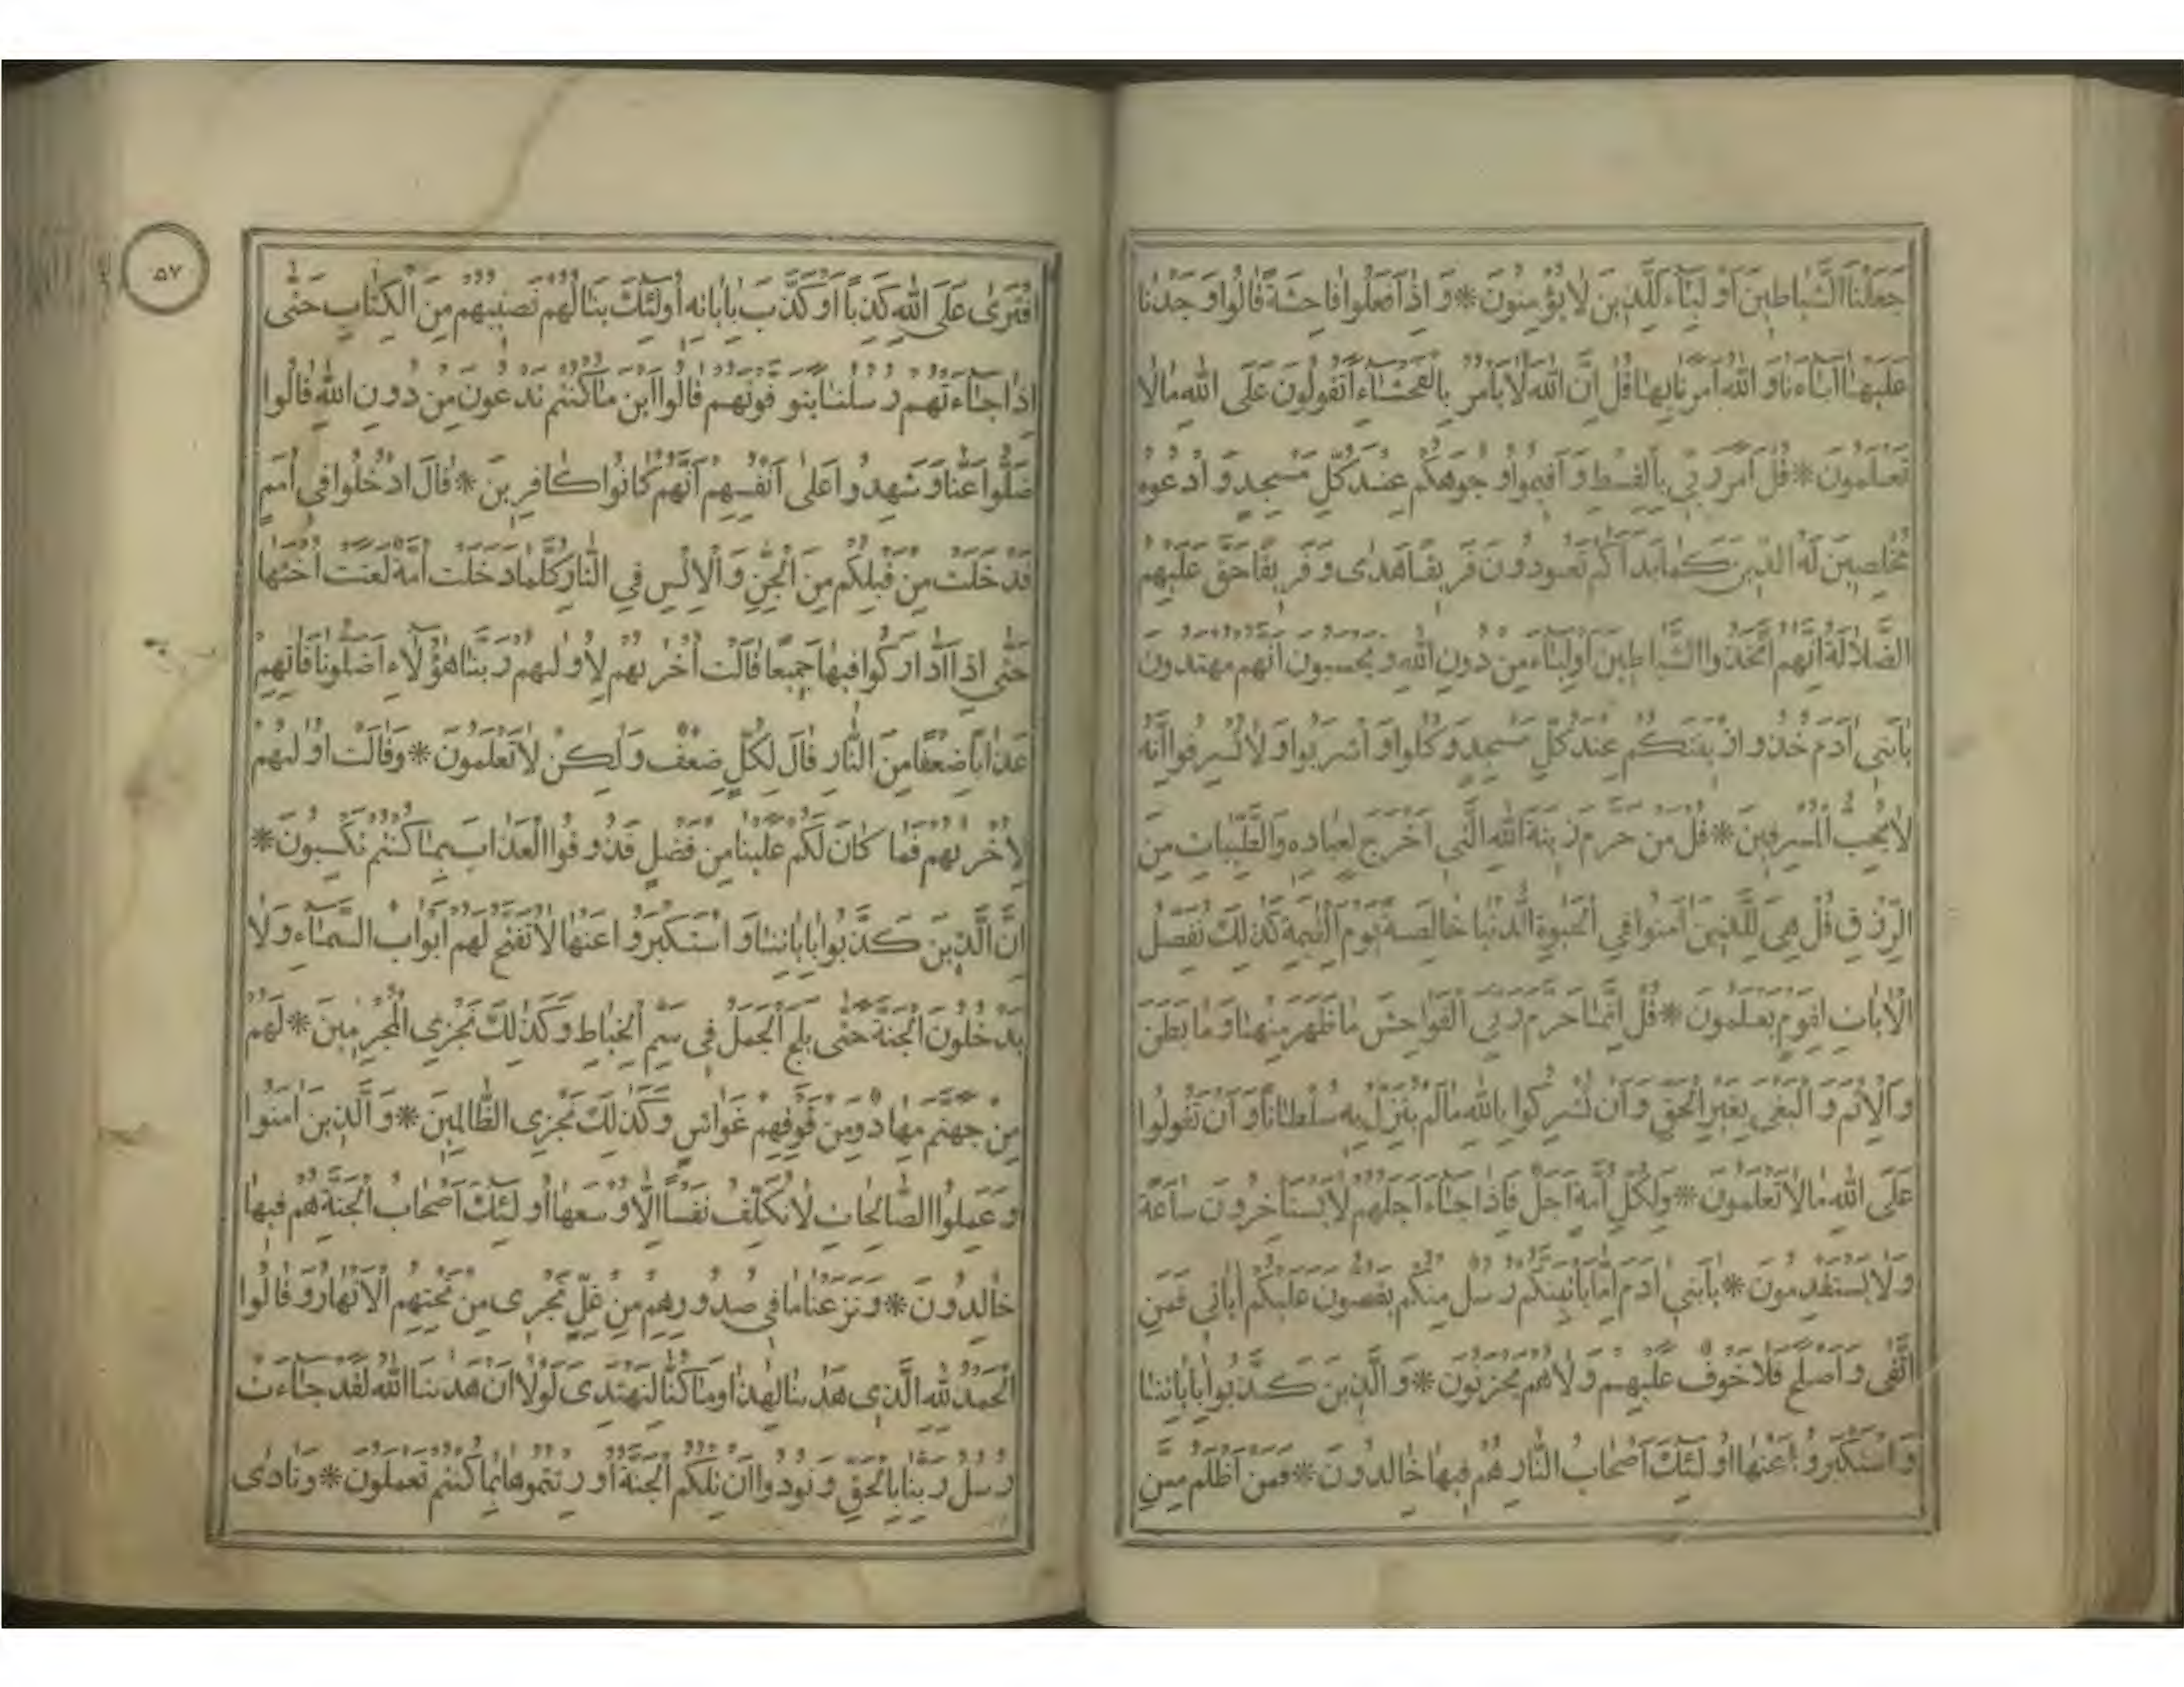 جَعَلْنَا الشَّيَاطِينَ أَوْلِيَاءَ لِلَّذِينَ لَا يُؤْمِنُونَ * وَإِذَا فَعَلُوا فَاحِشَةً قَالُوا وَجَدْنَا
عَلَيْهَا آبَاءَنَا وَاللَّهُ أَمَرَنَا بِهَا قُلْ إِنَّ اللَّهَ لَا يَأْمُرُ بِالْفَحْشَاءِ أَتَقُولُونَ عَلَى اللَّهِ مَا لَا
تَعْلَمُونَ * قُلْ أَمَرَ رَبِّي بِالْقِسْطِ وَأَقِيمُوا وُجُوهَكُمْ عِنْدَ كُلِّ مَسْجِدٍ وَادْعُوهُ
مُخْلِصِينَ لَهُ الدِّينَ كَمَا بَدَأَكُمْ تَعُودُونَ فَرِيقًا هَدٰى وَفَرِيقًا حَقَّ عَلَيْهِمُ
الضَّلَالَةُ إِنَّهُمُ اتَّخَذُوا الشَّيَاطِينَ أَوْلِيَاءَ مِنْ دُونِ اللَّهِ وَيَحْسَبُونَ أَنَّهُمْ مُهْتَدُونَ
يَا بَنِي آدَمَ خُذُوا زِينَتَكُمْ عِنْدَ كُلِّ مَسْجِدٍ وَكُلُوا وَاشْرَبُوا وَلَا تُسْرِفُوا إِنَّهُ
لَا يُحِبُّ الْمُسْرِفِينَ * قُلْ مَنْ حَرَّمَ زِينَةَ اللَّهِ الَّتِي أَخْرَجَ لِعِبَادِهِ وَالطَّيِّبَاتِ مِنَ
الرِّزْقِ قُلْ هِيَ لِلَّذِينَ آمَنُوا فِي الْحَيٰوةِ الدُّنْيَا خَالِصَةً يَوْمَ الْقِيٰمَةِ كَذٰلِكَ نُفَصِّلُ
الْآيَاتِ لِقَوْمٍ يَعْلَمُونَ * قُلْ إِنَّمَا حَرَّمَ رَبِّيَ الْفَوَاحِشَ مَا ظَهَرَ مِنْهَا وَمَا بَطَنَ
وَالْإِثْمَ وَالْبَغْيَ بِغَيْرِ الْحَقِّ وَأَنْ تُشْرِكُوا بِاللَّهِ مَا لَمْ يُنَزِّلْ بِهِ سُلْطَانًا وَأَنْ تَقُولُوا
عَلَى اللَّهِ مَا لَا تَعْلَمُونَ * وَلِكُلِّ أُمَّةٍ أَجَلٌ فَإِذَا جَاءَ أَجَلُهُمْ لَا يَسْتَأْخِرُونَ سَاعَةً
وَلَا يَسْتَقْدِمُونَ * يَا بَنِي آدَمَ إِمَّا يَأْتِيَنَّكُمْ رُسُلٌ مِنْكُمْ يَقُصُّونَ عَلَيْكُمْ آيَاتِي فَمَنِ
اتَّقٰى وَأَصْلَحَ فَلَا خَوْفٌ عَلَيْهِمْ وَلَا هُمْ يَحْزَنُونَ * وَالَّذِينَ كَذَّبُوا بِآيَاتِنَا
وَاسْتَكْبَرُوا عَنْهَا أُولٰئِكَ أَصْحَابُ النَّارِ هُمْ فِيهَا خَالِدُونَ * فَمَنْ أَظْلَمُ مِمَّنِ
٥٧
افْتَرٰى عَلَى اللَّهِ كَذِبًا أَوْ كَذَّبَ بِآيَاتِهِ أُولٰئِكَ يَنَالُهُمْ نَصِيبُهُمْ مِنَ الْكِتَابِ حَتّٰى
إِذَا جَاءَتْهُمْ رُسُلُنَا يَتَوَفَّوْنَهُمْ قَالُوا أَيْنَ مَا كُنْتُمْ تَدْعُونَ مِنْ دُونِ اللَّهِ قَالُوا
ضَلُّوا عَنَّا وَشَهِدُوا عَلٰى أَنْفُسِهِمْ أَنَّهُمْ كَانُوا كَافِرِينَ * قَالَ ادْخُلُوا فِي أُمَمٍ
قَدْ خَلَتْ مِنْ قَبْلِكُمْ مِنَ الْجِنِّ وَالْإِنْسِ فِي النَّارِ كُلَّمَا دَخَلَتْ أُمَّةٌ لَعَنَتْ أُخْتَهَا
حَتّٰى إِذَا ادَّارَكُوا فِيهَا جَمِيعًا قَالَتْ أُخْرٰيهُمْ لِأُولٰيهُمْ رَبَّنَا هٰؤُلَاءِ أَضَلُّونَا فَآتِهِمْ
عَذَابًا ضِعْفًا مِنَ النَّارِ قَالَ لِكُلٍّ ضِعْفٌ وَلٰكِنْ لَا تَعْلَمُونَ * وَقَالَتْ أُولٰيهُمْ
لِأُخْرٰيهُمْ فَمَا كَانَ لَكُمْ عَلَيْنَا مِنْ فَضْلٍ فَذُوقُوا الْعَذَابَ بِمَا كُنْتُمْ تَكْسِبُونَ *
إِنَّ الَّذِينَ كَذَّبُوا بِآيَاتِنَا وَاسْتَكْبَرُوا عَنْهَا لَا تُفَتَّحُ لَهُمْ أَبْوَابُ السَّمَاءِ وَلَا
يَدْخُلُونَ الْجَنَّةَ حَتّٰى يَلِجَ الْجَمَلُ فِي سَمِّ الْخِيَاطِ وَكَذٰلِكَ نَجْزِي الْمُجْرِمِينَ * لَهُمْ
مِنْ جَهَنَّمَ مِهَادٌ وَمِنْ فَوْقِهِمْ غَوَاشٍ وَكَذٰلِكَ نَجْزِي الظَّالِمِينَ * وَالَّذِينَ آمَنُوا
وَعَمِلُوا الصَّالِحَاتِ لَا نُكَلِّفُ نَفْسًا إِلَّا وُسْعَهَا أُولٰئِكَ أَصْحَابُ الْجَنَّةِ هُمْ فِيهَا
خَالِدُونَ * وَنَزَعْنَا مَا فِي صُدُورِهِمْ مِنْ غِلٍّ تَجْرِي مِنْ تَحْتِهِمُ الْأَنْهَارُ وَقَالُوا
الْحَمْدُ لِلَّهِ الَّذِي هَدٰينَا لِهٰذَا وَمَا كُنَّا لِنَهْتَدِيَ لَوْلَا أَنْ هَدٰينَا اللَّهُ لَقَدْ جَاءَتْ
رُسُلُ رَبِّنَا بِالْحَقِّ وَنُودُوا أَنْ تِلْكُمُ الْجَنَّةُ أُورِثْتُمُوهَا بِمَا كُنْتُمْ تَعْمَلُونَ * وَنَادٰى